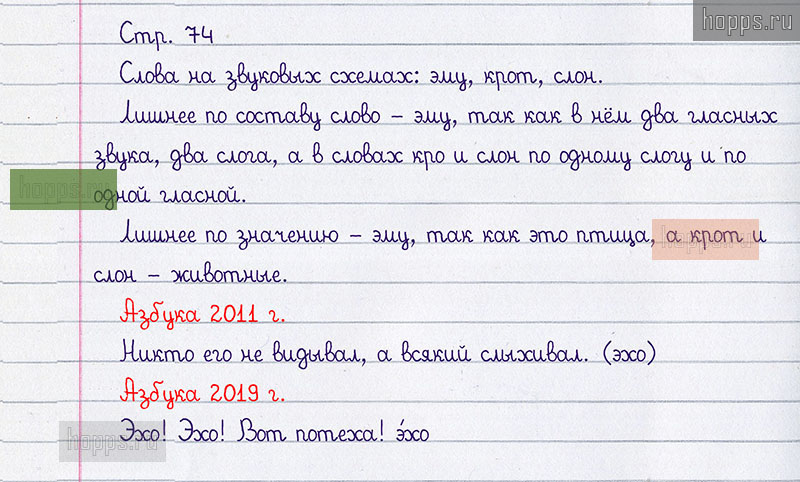 hopps.ru
Стр. 74
Слова на звуковых схемах: эму, крот, слон.
Лишнее по составу слово – эму, так как в нём два гласных
звука, два слога, а в словах кро и слон по одному слогу и по
hopps.ru
одной гласной.
Лишнее по значению – эму, так как это птица, а крот и
hopps.ru
слон – животные.
Азбука 2011 г.
Никто его не видывал, а всякий слыхивал. (эхо)
Азбука 2019 г.
Эхо! Эхо! Вот потеха! э́хо
hopps.ru